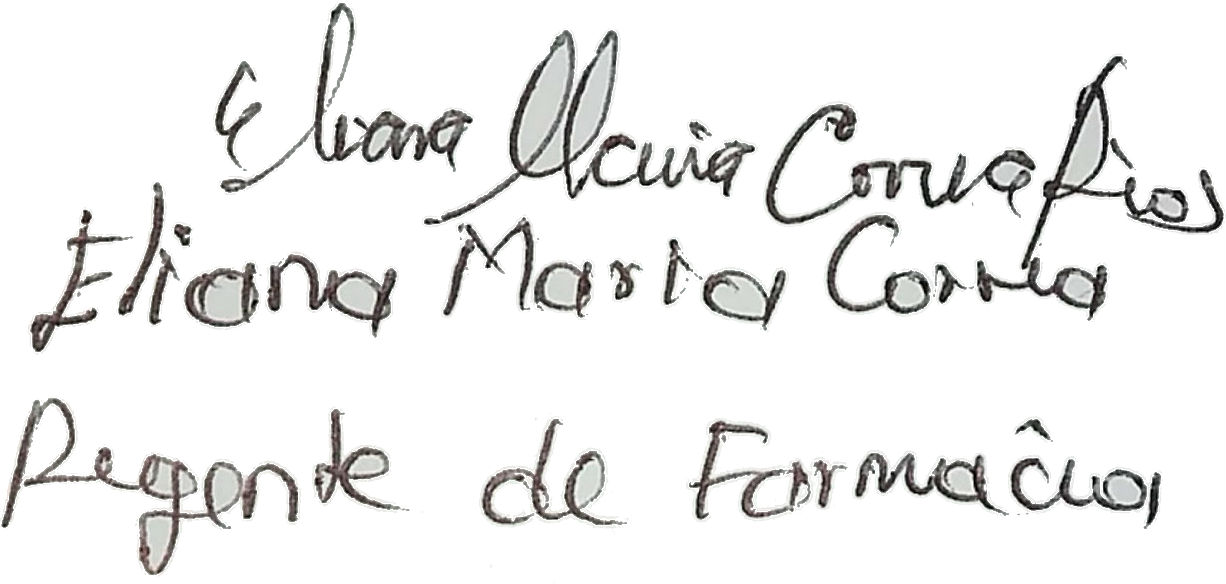 Eliana Maria Correa Rios
Eliana Maria Correa
Regente de Farmacia